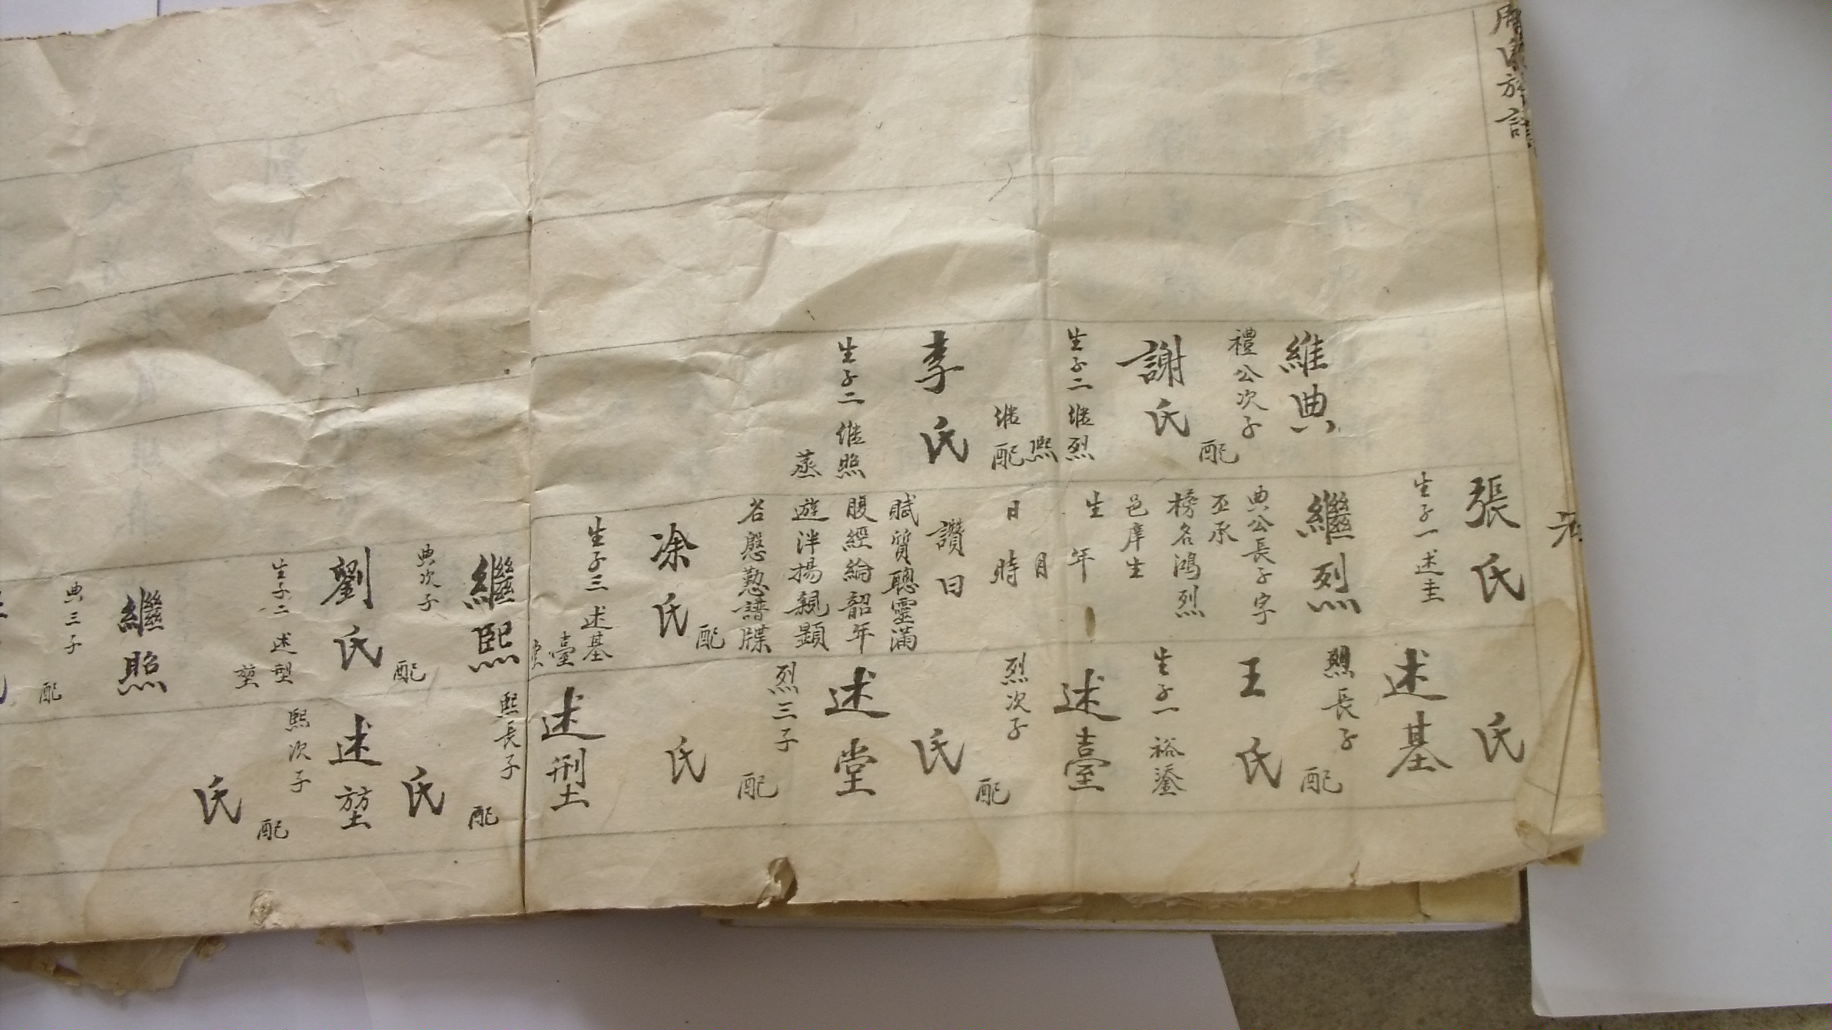 維典
禮公次子
配
謝氏
生子二 繼烈
繼熙
配
李氏
生子二 繼照
蒸
張氏
生子一 述圭
繼烈
典公長子字
丕承
榜名鴻烈
邑庠生
生 年
月
日 時
讚曰
賦質聰靈滿
腹經綸韶年
遊泮揚親顯
名慇懃譜牒
配
凃氏
生子三 述基
臺
繼熙
典次子
配
劉氏
生子二 述型
堃
繼照
典三子
配
氏
述基
烈長子
配
王氏
生子一 裕鎏
述臺
烈次子
配
氏
述堂
烈三子
配
氏
述型
熙長子
配
氏
述堃
熙次子
配
氏